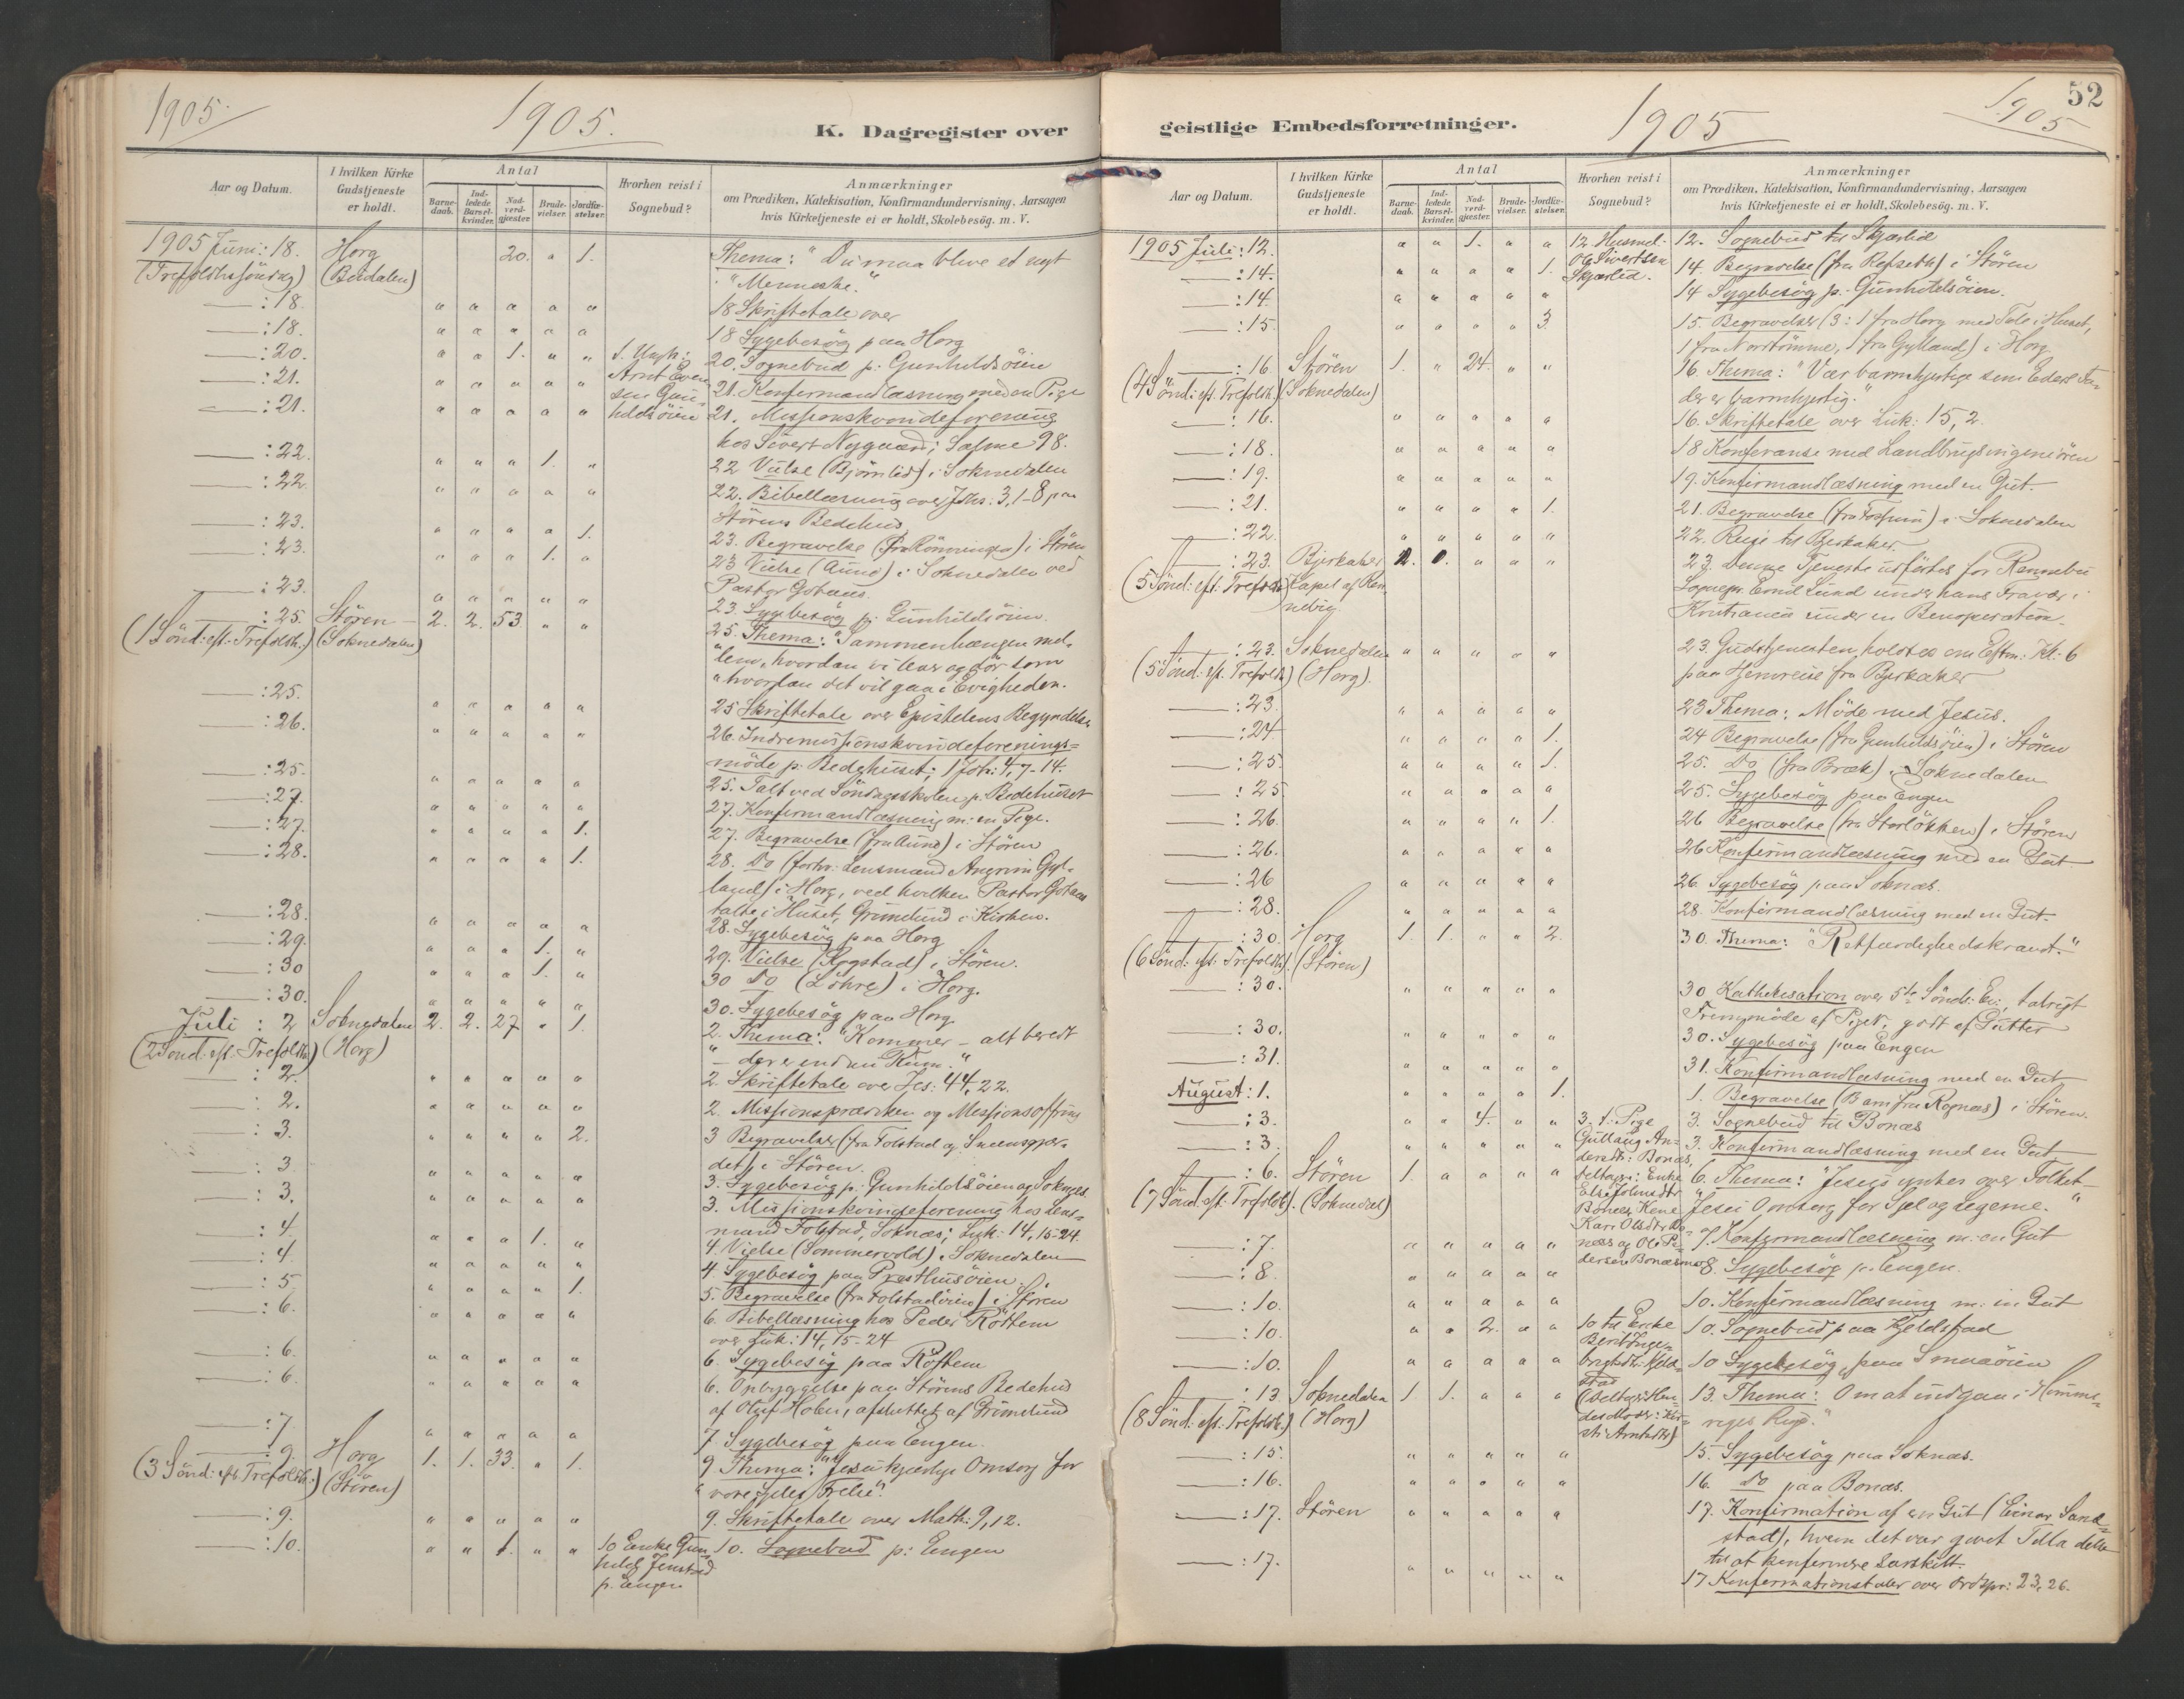 1905.
1905.
K. Dagregister over
Aar og Datum.
I hvilken Kirke Gudstjeneste er holdt.
Antal
Barnedaab.
Indledede Barselkvinder.
Nadverdgjæster.
Brudevielser.
Jordfæstelser.
Hvorhen reist i Sognebud?
Anmærkninger
om Prædiken, Katekisation, Konfirmandundervisning, Aarsagen
hvis Kirketjeneste ei er holdt, Skolebesøg. m. V.
1905 Juni: 18. Horg 20. " 1. Thema: "Du maa blive et nyt
(Trefoldhs söndag) (Budalen) "Menneske."
: 18. " " " " " 18 Skriftetale over
: 18. " " " " " 18 Sygebesög paa Horg
: 20. " " 1. " " 20. Sognebud p: Gunhildsöien
: 21. " " " " " 21. Konfirmandlæsning med en Pige
: 21. " " " " " 21. Missionskvindeforening
hos Sivert Nygaard; Salme 98.
: 22. " " " 1. " 22 Vielse (Bjørnlid) i Soknedalen
: 22. " " " " " 22. Bibellæsning over Joh: 3,1-8 paa
Störens Bedehus
: 23. " " " " 1. 23. Begravelse (fra Rönningen) i Stören
: 23. " " " 1. " 23 Vielse (Aune) i Soknedalen ved
Pastor Gotaas.
: 23. " " " " " 23. Sygebesög p: Gunhildsöien.
: 25. Stören 2. 2. 53. " " 25. Thema: "Sammenhængen mel-
(1 Sönd: eft. Trefoldh.) (Soknedalen) "lem, hvordan vi lever og dör som
"hvordan det vil gaa i Evigheden.
: 25. " " " " " 25 Skriftetale over Epistelens Begyndelse
: 26. " " " " " 26. Indremissionskvindeforenings=
möde p: Bedehuset; 1 Joh: 4,7-14.
: 25. " " " " " 25. Talt ved Söndagsskolen p. Bedehuset
: 27. " " " " " 27. Konfirmandlæsning m: en Pige.
: 27. " " " " 1. 27. Begravelse (fra Aune) i Stören
: 28. " " " " 1. 28. Do (forhv: Lensmand Gyl-
land) i Horg, ved hvilken Pastor Gotaas
talte i Huset, Grimelund i Kirken.
: 28. " " " " " 28. Sygebesög paa Horg
: 29. " " " 1. " 29. Vielse i Stören.
: 30 " " " 1. " 30 Do i Horg.
: 30. " " " " " 30. Sygebesög paa Horg
Juli : 2 Soknedalen 2. 2. 27 " 1. 2. Thema: "Kommer - alt beredt
(2 Sönd: eft. Trefoldh.) (Horg) "- der er endnu Rum."
: 2. " " " " " 2. Skriftetale over Jes: 44,22.
: 2. " " " " " 2. Missionsprædiken og Missionsoffring
: 3. " " " " 2. 3 Begravelser (fra Folstad og
det) i Stören.
: 3 " " " " " 3. Sygebesög p: Gunhildsöien og Soknæs.
: 3. " " " " " 3. Missionskvindeforening hos Lens-
mand Folstad, Soknæs; Luk: 14,15-24.
: 4. " " " 1. " 4. Vielse (Sommervold) i Soknedalen
: 4. " " " " " 4 Sygebesög paa Presthusöien.
: 5. " " " " 1. 5. Begravelse (fra Folstadöien) i Stören
: 6. " " " " " 6. Bibellæsning hos Peder Röttem
over Luk: 14, 15-24
: 6. " " " " " 6. Sygebesög paa
: 6. " " " " " 6. Opbyggelse paa Störens Bedehus
af Oluf Holm, afsluttet af Grimelund
: 7. " " " " " 7. Sygebesög paa Engen.
: 9. Horg 1. 1. 33. " 1. 9 Thema: "Jesu kjærlige Omsorg for
(3 Sönd: eft. Trefoldh.) (Stören) "vore Sjeles Frelse".
: 9. " " " " " 9. Skriftetale over Math: 9,12.
: 10. " " 1. " " 10 Enke Gun-hild p. Engen 10. Sognebud p: Engen
52
1905
1905
geistlige Embedsforretninger.
Aar og Datum.
I hvilken Kirke Gudstjeneste er holdt.
Antal
Barnedaab.
Indledede Barselkvinder.
Nadverdgjæster.
Brudevielser.
Jordfæstelser.
Hvorhen reist i Sognebud?
Anmærkninger
om Prædiken, Katekisation, Konfirmandundervisning, Aarsagen
hvis Kirketjeneste ei er holdt, Skolebesøg. m. V.
1905 Juli: 12. " " 1. " " 12. Sognebud til Skjærlid
: 14. " " " " 1. 14. Begravelse (fra Refseth) i Stören
: 14. " " " " " 14 Sygebesög p. Gunhildsöien.
: 15. " " " " 3. 15. Begravelser (3: 1 fra Horg med Tale i Huset,
1 fra 1 fra Gylland) i Horg
: 16. Stören 1. " 24. " " 16. Thema: "Vær barmhjertige som Eders Fa-
(4 Sönd: eft. Trefoldh.) (Soknedalen) der er barmhjertig."
: 16. " " " " " 16. Skriftetale over Luk: 15,2.
: 18. " " " " " 18 Konferanse med Landbrugsingeniören
: 19. " " " " " 19. Konfirmandlæsning med en Gut.
: 21. " " " " 1. 21. Begravelse (fra Fossum) i Soknedalen
: 22. " " " " " 22. Reise til Bjerkaker.
: 23. Bjerkaker 2. 0. " " " 23. Denne Tjeneste udfördes for Rennebu
(5 Sönd: eft. Trefoldh.) Kapel af Ren-nebu. Sognepr. Emil Lund under hans Fravær i
Kristiania under en Benoperation.
: 23. Soknedalen " " " " " 23. Gudstjenesten holdtes om Eftm: Kl: 6
(5 Sönd: eft. Trefoldh.) (Horg). paa Hjemreise fra Bjerkaker
: 23. " " " " " 23 Thema: Möde med Jesus.
: 24 " " " " 1. 24 Begravelse (fra Gunhildsöien) i Stören
: 25 " " " " 1. 25. Do (fra Bræk) i Soknedalen
: 25 " " " " " 25. Sygebesög paa Engen
: 26. " " " " 1. 26 Begravelse (fra Storlökken) i Stören
: 26. " " " " " 26 Konfirmandlæsning med en Gut
: 26 " " " " " 26. Sygebesög paa Soknæs.
: 28. " " " " " 28. Konfirmandlæsning med en Gut.
: 30. Horg 1. 1. " " 2. 30. Thema: "Retfærdighedskravet."
(6 Sönd: eft: Trefoldh.) (Stören)
: 30. " " " " " 30 Kathekisation over 5te Sönds: Ev:, talrigt
Fremmöde af Piger, godt af Gutter
: 30. " " " " " 30. Sygebesög paa Engen
: 31. " " " " " 31. Konfirmandlæsning med en Gut
August: 1. " " " " 1. 1. Begravelse (Barn fra Rognæs) i Stören.
: 3 " " 4. " " 3. Sognebud til Bonæs
: 3 " " " " " 3. Konfirmandlæsning med en Gut
: 6. Stören 1. " " " " 6. Thema: "Jesus ynkes over Folket-
(7 Sönd: eft. Trefoldh.) (Soknedal) Jesu Omsorg for Sjel og Legeme."
: 7. " " " " " 7. Konfirmandlæsning m: en Gut
: 8. " " " " " 8. Sygebesög p. Engen.
: 10. " " " " " 10. Konfirmandlæsning m: en Gut
: 10. " " 2. " " 10. Sognebud paa Kjeldstad
: 10. " " " " " 10 Sygebesög paa Smaaöien
: 13. Soknedalen 1. 1. " " " 13. Thema: Om at indgaa i Himme-
(8 Sönd: eft. Trefoldh.) (Horg) riges Rige."
: 15. " " " " " 15. Sygebesög paa Soknæs.
: 16. " " " " " 16. Do paa Bonæs.
: 17. Stören " " " " " 17. Konfirmation af en Gut (Einar Sand=
stad), hvem det var givet Tilladelse
til at konfirmere særskilt.
: 17. " " " " " 17 Konfirmationstaler over Ordspr: 23, 26.